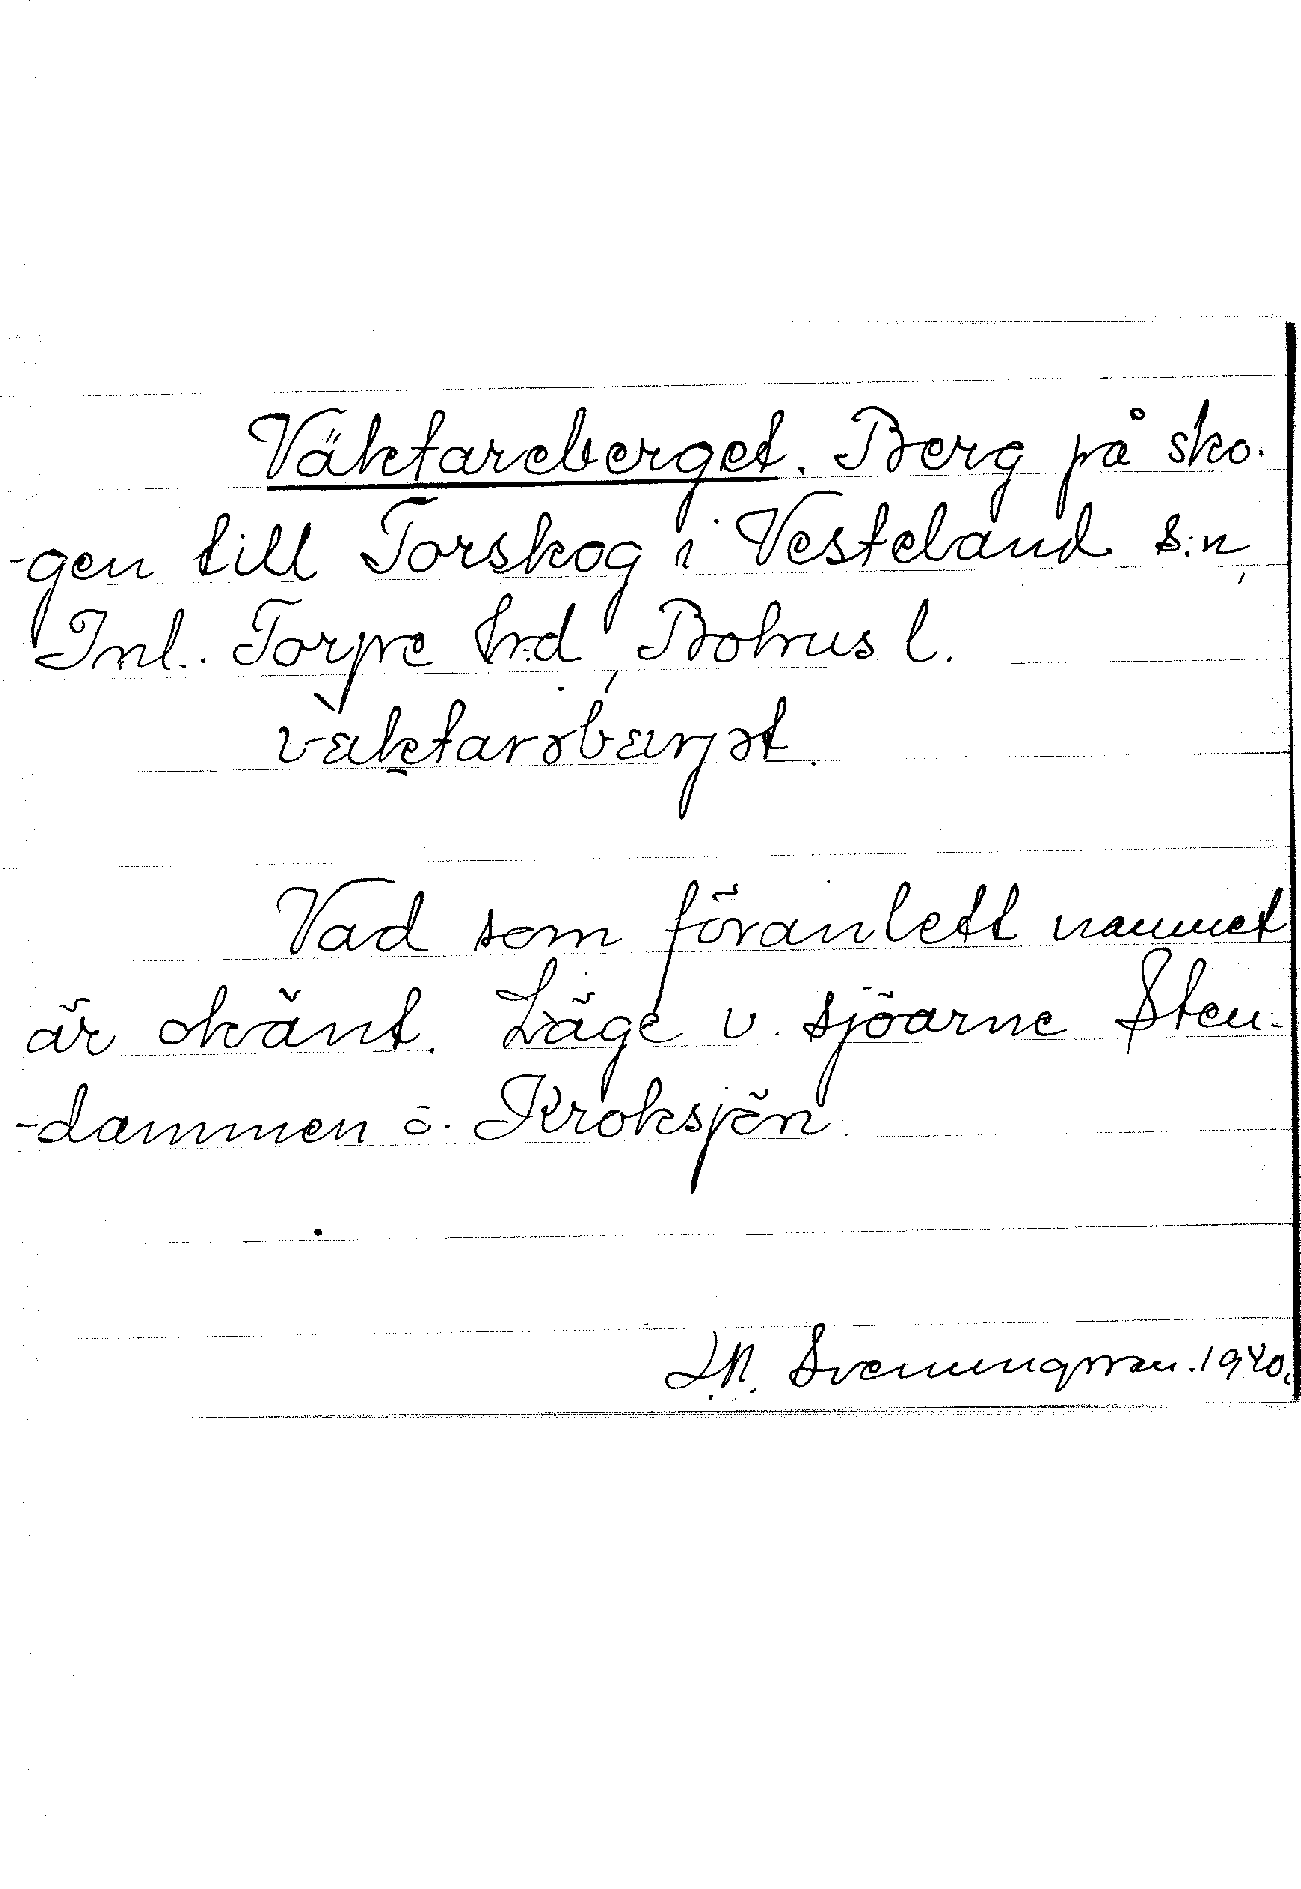 Väktareberget. Berg på sko-
-gen till Torskog i Vesteland s:n,
Inl. Torpe h:d, Bohus l.
vàktarəbærjət.
Vad som föranlett namnet
är okänt. Läge v. sjöarne Sten-
-dammen o. Kroksjön.
Svenungsson. 1940.